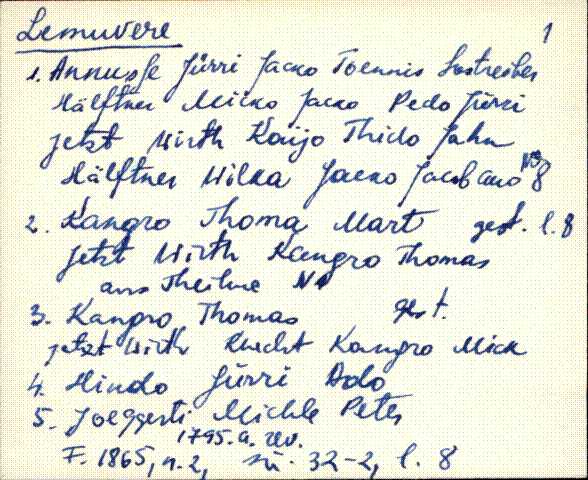 Lemuvere 1
1. Annusse Jürri Jacko Toennis Lostreiber
Hälftner Micko Jacko Pedo Jürri
jetzt Wirth Kaijo Thido Jahn
Hälftner Wilka Jacko Jacob aus No 8
2. Kangro Thoma Mart gest. l. 8
jetzt Wirth Kangro Thomas
aus Theilne No
3. Kangro Thomas gest.
jetzt Wirth Knecht Kangro Mick
4. Hindo Jürri Ado
5. Joeggesti Michle Peter
1795. a. rev.
F. 1865, n. 2, sü. 32-2, l. 8